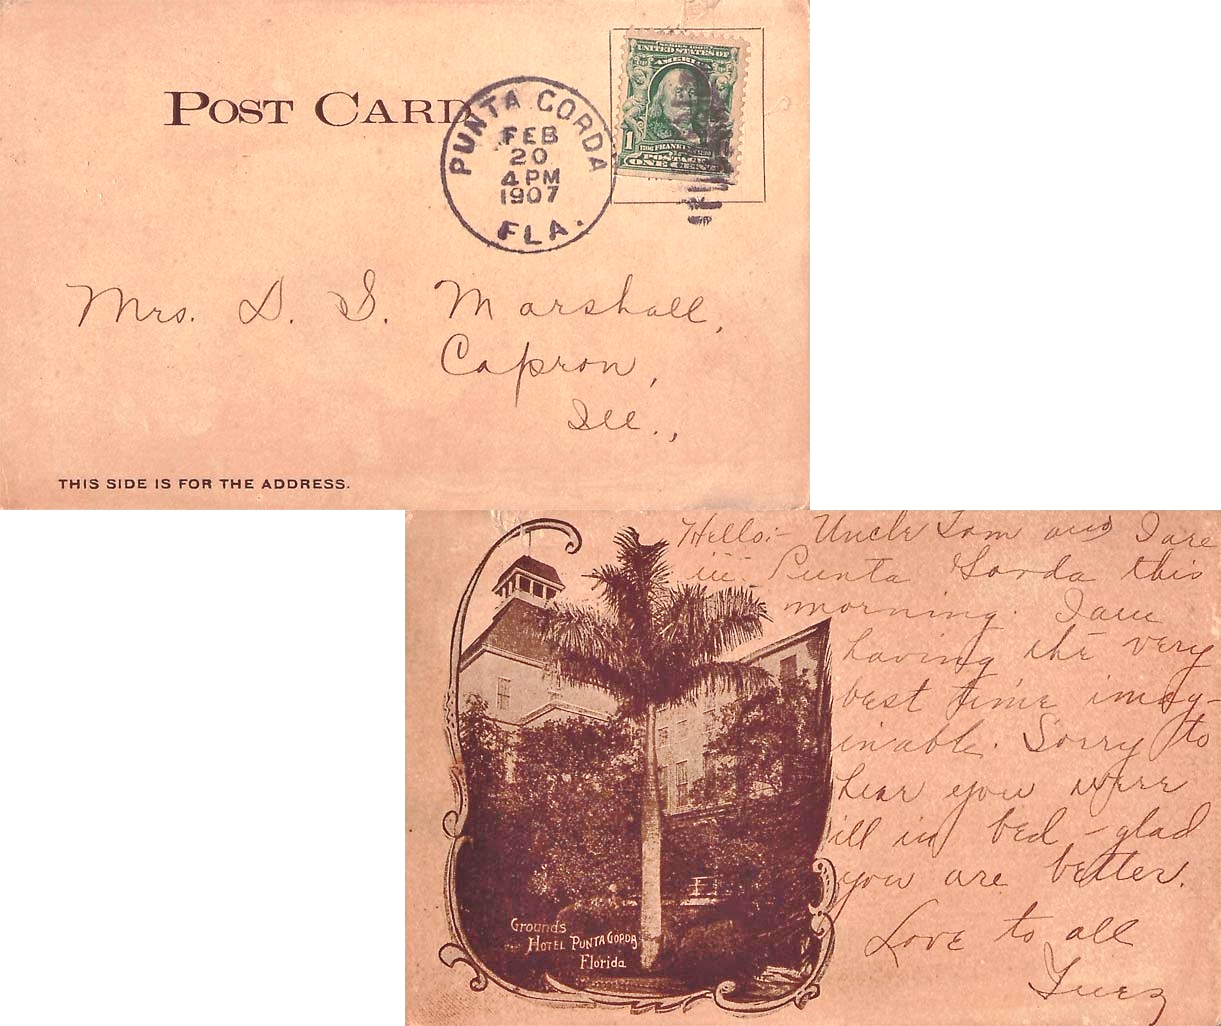 POST CARD
PUNTA GORDA
FEB
20
4 PM
1907
FLA.
SERIES 1902
UNITED STATES OF
AMERICA
1
FRANKLIN
POSTAGE
ONE CENT
Mrs. D. S. Marshall,
Capron,
Ill.,
THIS SIDE IS FOR THE ADDRESS.
Hello:- Uncle Tom and I are
in Punta Gorda this
morning. I am
having the very
best time imag-
inable. Sorry to
hear you were
ill in bed - glad
you are better.
Love to all
Grounds
HOTEL PUNTA GORDA
Florida